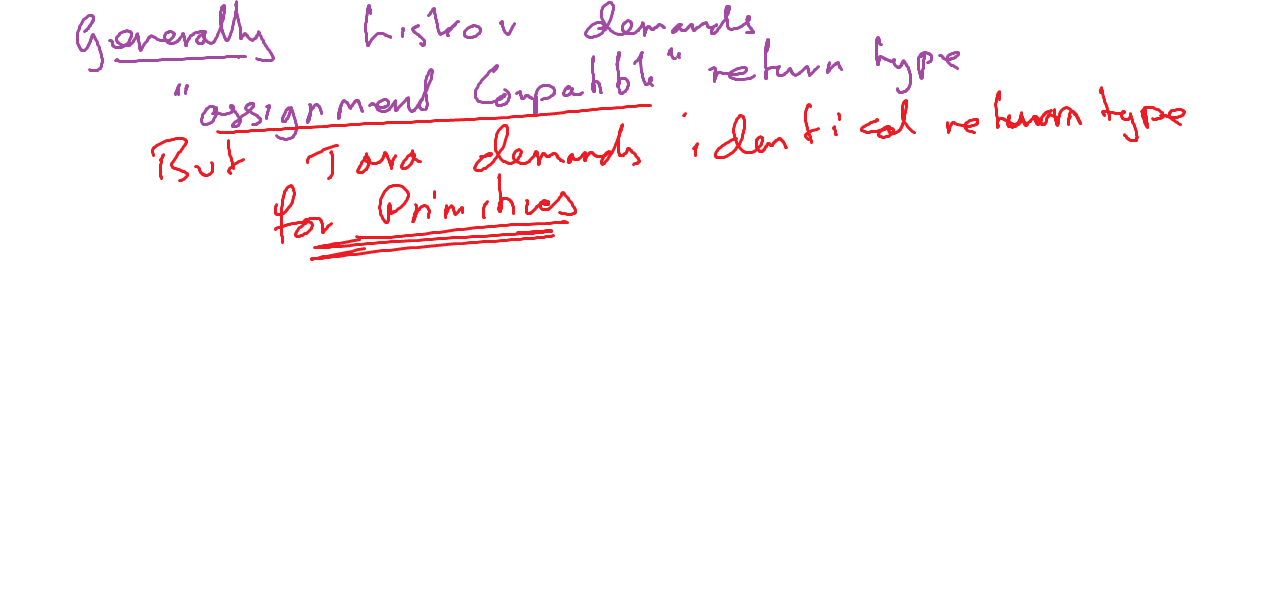 Generally Liskov demands
"assignment Compatible" return type
But Java demands identical return type
for Primitives